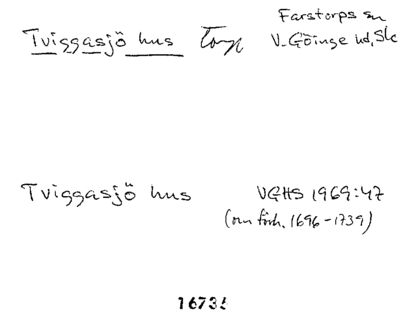 Tviggasjö hus Torp Farstorps sn
V. Göinge hd, Sk
Tviggasjö hus VGHS 1969:47
(om förh. 1696-1739)